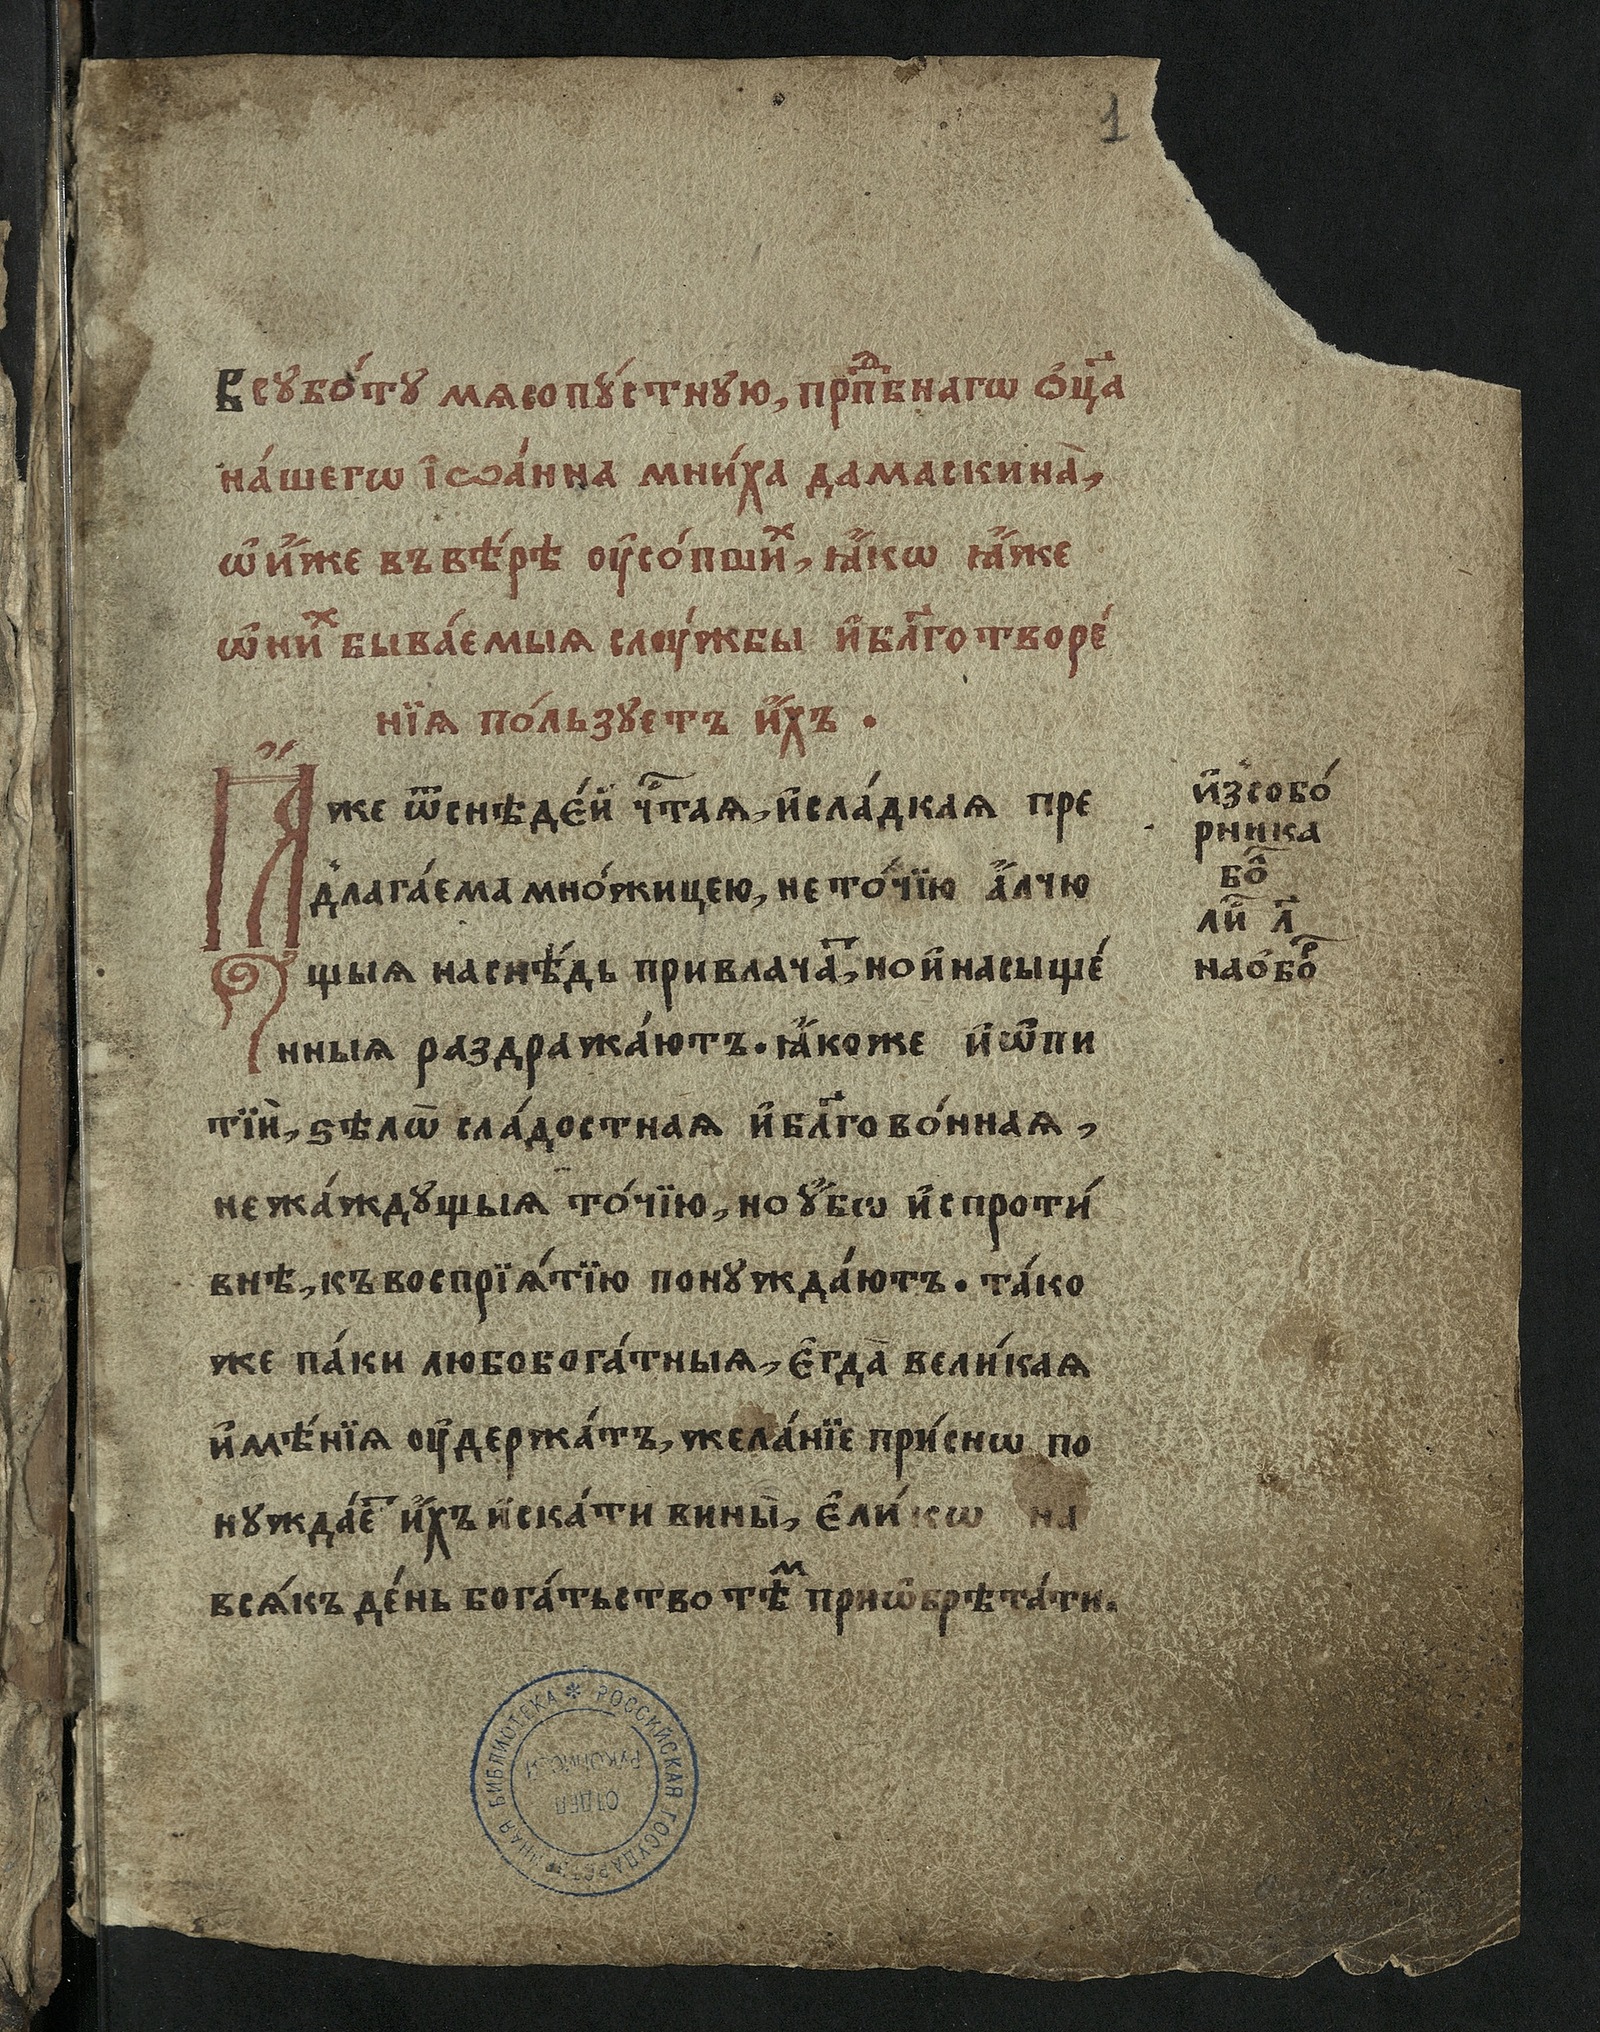 1
В сꙋбо́тꙋ мѧсопꙋ́стнꙋю, прⷣп҃бнагѡ ѻ҆ц҃а
на́шегѡ і҆ѡа́нна мни́ха дамаскина̀,
ѡ҆ и҆́же въ вѣ́рѣ ᲂу҆со́пшиⷯ, ꙗ҆́кѡ ꙗ҆́же
ѡ҆ ниⷯ быва́емыѧ слꙋ́жбы и҆ бл҃готворе́
нїѧ по́льзꙋетъ и҆́хъ.
Ꙗ҆́же ѿ снѣде́й чⷭ҇таѧ, и҆ сла́дкаѧ пре
длага́ема мно́жицею, не то́чїю а҆́лчю
щыѧ на снѣ́дь привлача́ⷮ, но и҆ насыще́
нныѧ раздража́ютъ. ꙗ҆́коже и҆ ѡ҆ пи
тїи̇, ѕѣлѡ̀ сла́достнаѧ и҆ бл҃гово́ннаѧ,
не жа́ждꙋщыѧ то́чїю, но ᲂу҆́бѡ и҆ спроти́
внѣ, къ воспрїѧ́тїю понꙋжда́ютъ. та́ко
же па́ки любобога́тныѧ, є҆гда̀ вели́каѧ
и҆мѣ́нїѧ ᲂу҆держа́тъ, жела́нїе при́снѡ по
нꙋжда́еⷮ и҆́хъ и҆ска́ти вины̀, є҆ли́кѡ на
всѧ́къ де́нь бога́тьство тѣⷨ приѡ҆брѣта́ти.
и҆з собо́
рника
бо
ли л
на ѻ҆боⷬ
РОССИЙСКАЯ ГОСУДАРСТВЕННАЯ БИБЛИОТЕКА *
ОТДЕЛ
РУКОПИСЕЙ